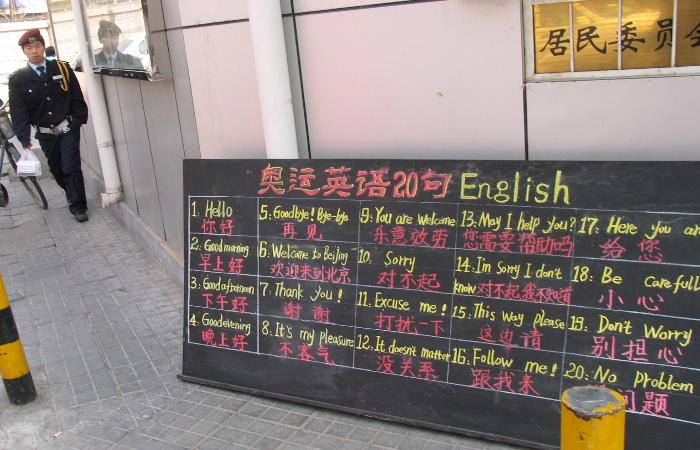 居民委员会
奥运英语20句 English
1. Hello
你好
2. Good morning
早上好
3. Good afternoon
下午好
4. Good evening
晚上好
5. Goodbye! Bye-bye
再见
6. Welcome to Beijing
欢迎来到北京
7. Thank you!
谢谢
8. It's my pleasure
不客气
9. You are welcome
乐意效劳
10. Sorry
对不起
11. Excuse me!
打扰一下
12. It doesn't matter
没关系
13. May I help you?
您需要帮助吗
14. I'm Sorry I don't
know 对不起,我不知道
15. This way please
这边请
16. Follow me!
跟我来
17. Here you are
给您
18. Be carefull
小心
19. Don't Worry
别担心
20. No Problem
问题